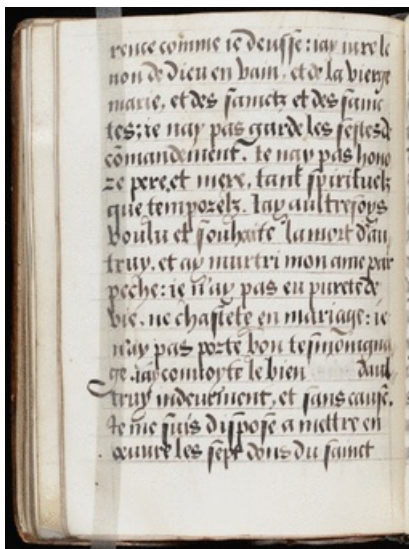 rence comme ie deusse: iay iure le
non de Dieu en vain, et de la vierge
marie, et des sainctz et des sainc
tes: ie nay pas garde les festes de
cōmandement. Ie nay pas hono
re pere, et mere, tant spirituelz
que temporelz. Iay aultrefoys
voulu et souhaite la mort dau
truy, et ay murtri mon ame par
peche: ie n'ay pas eu purete de
vie, ne chastete en mariage: ie
n'ay pas porte bon tesmoigna
ge. iay conuoyte le bien daul
truy indeuement, et sans cause.
Ie me suis dispose a mettre en
œuure les sept dons du sainct